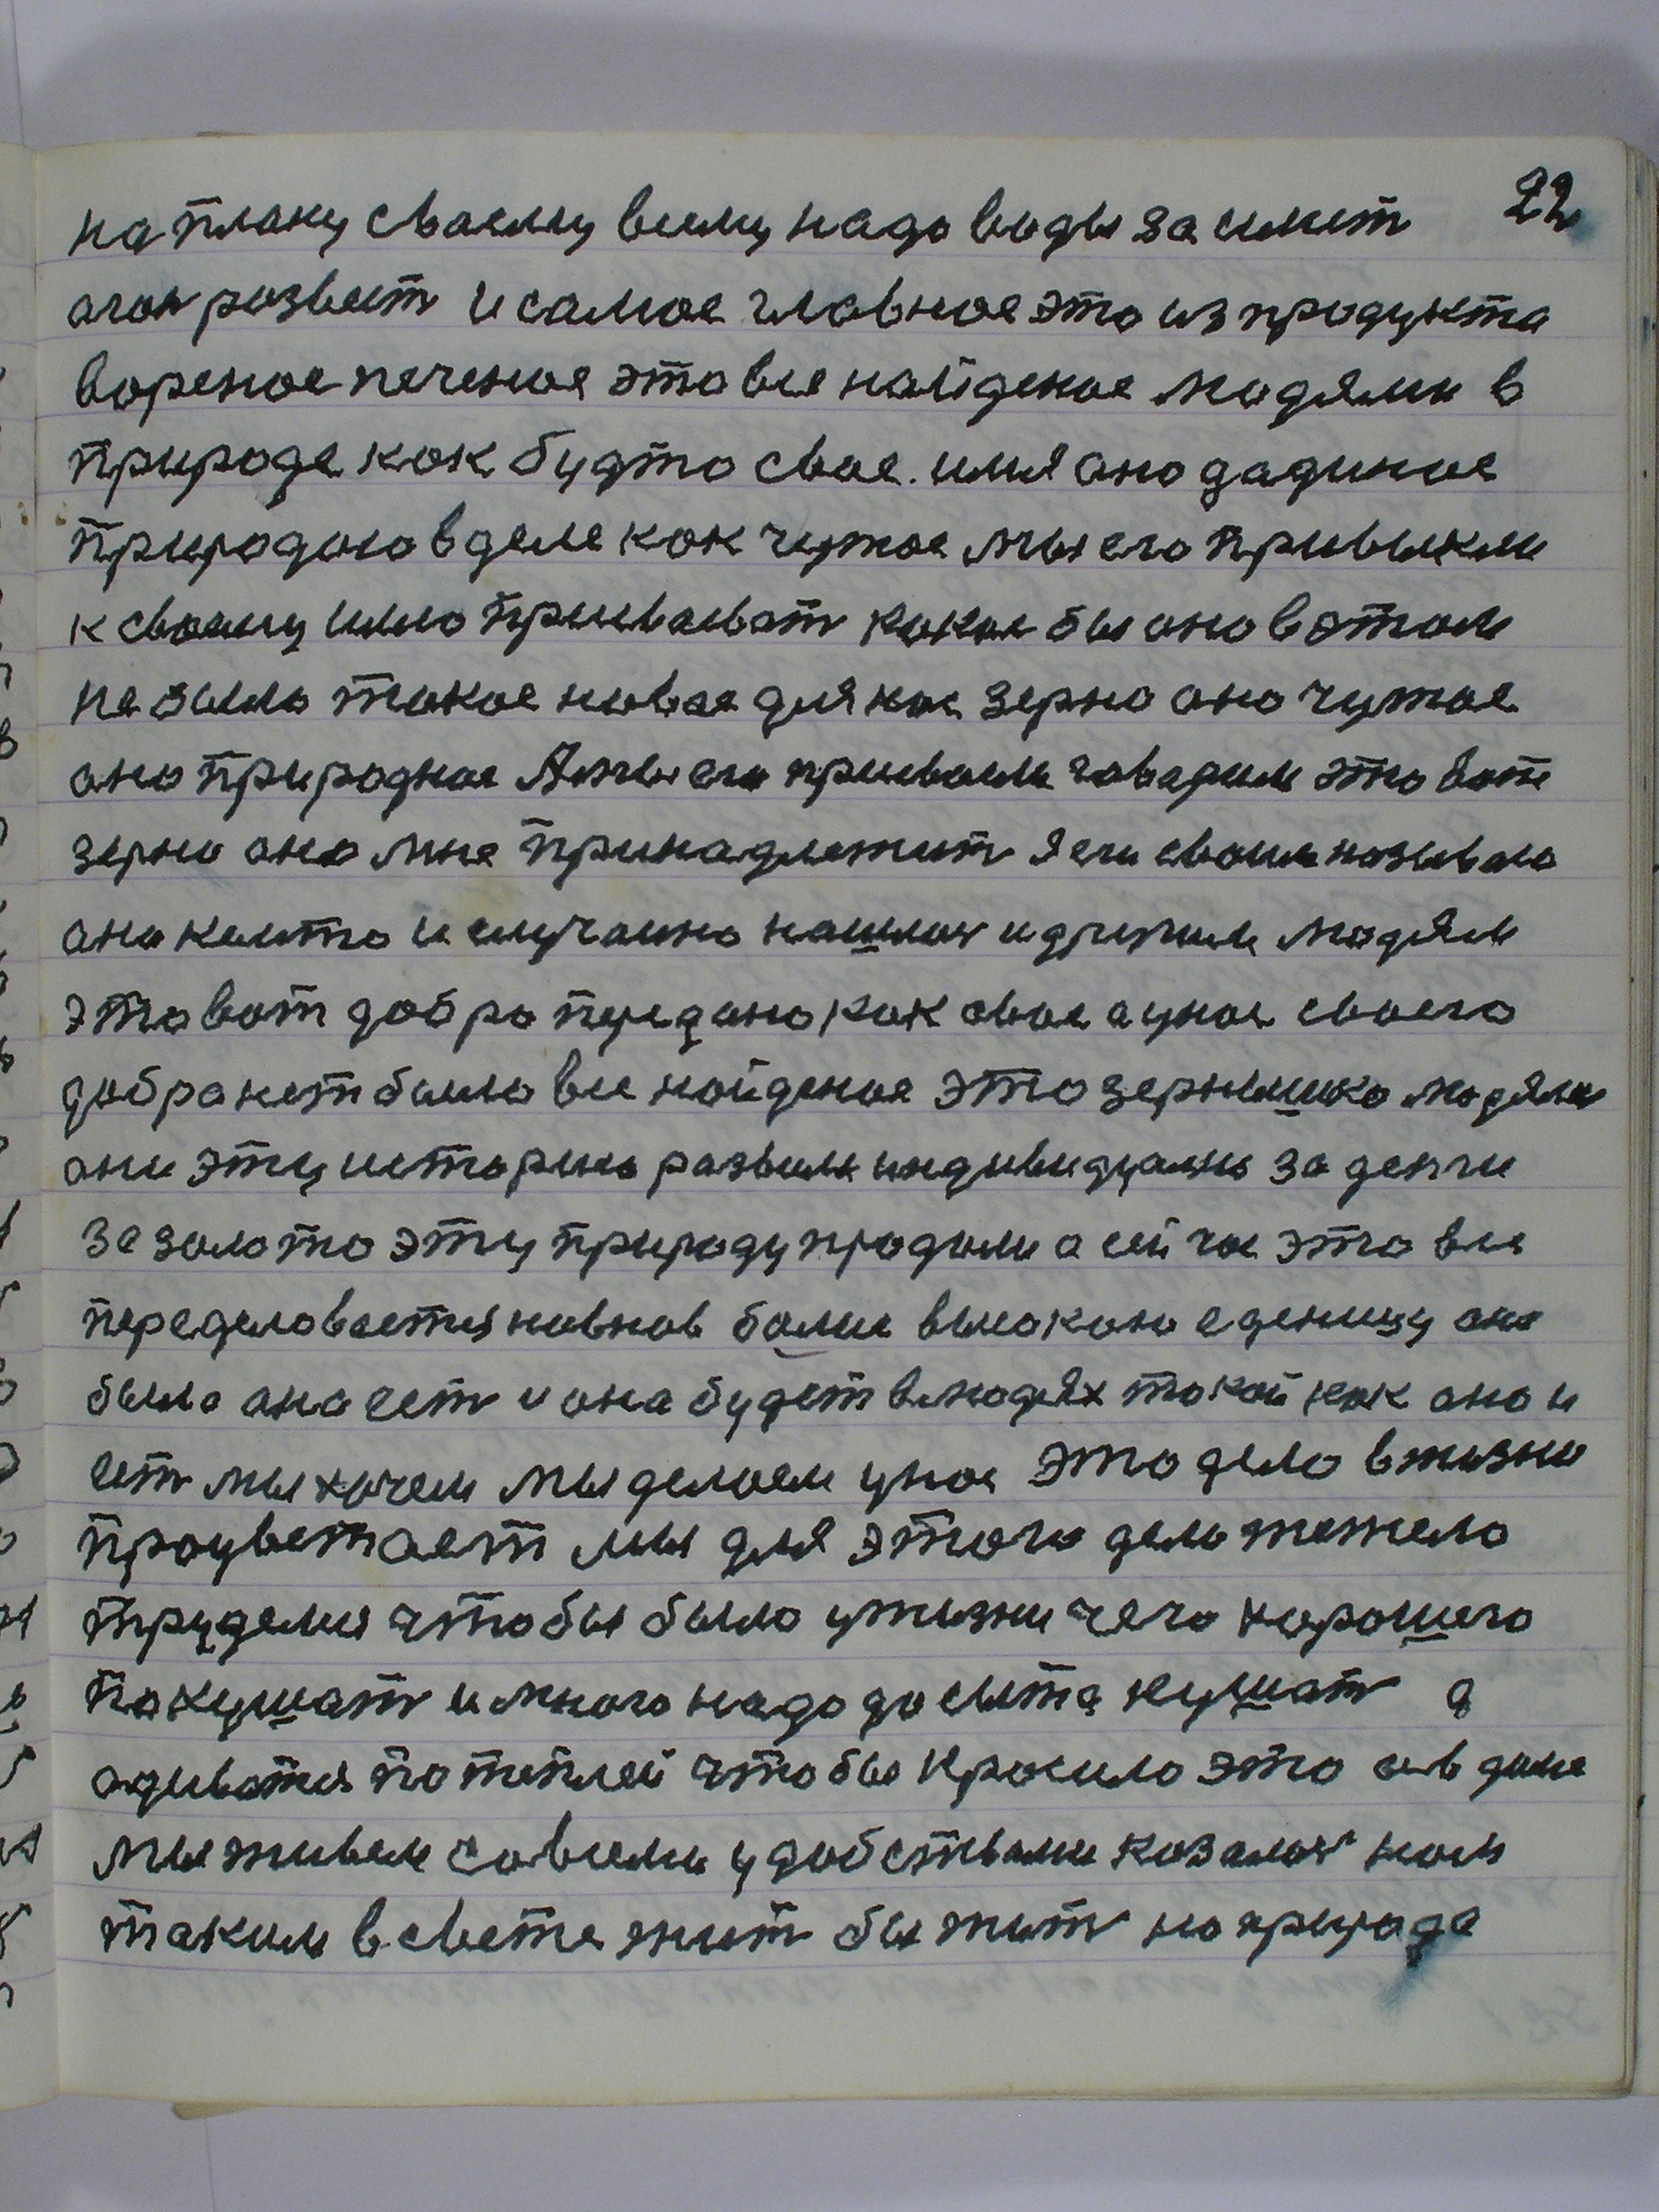 22
на плану сваему всему надо воды за имет
агон развест и самое главное это из продукта
вореное печеное это все найденое людями в
природе как будто свае. имя оно дадиное
природою в деле как чужое мы его привыкли
к сваему имю присваеват какое бы оно в этом
не было такое новае для нас зерно оно чужое
оно природное А мы его присваели гаварим это вот
зерно оно мне принадлежит я его своим называю
оно кемто и случаино нашлос и другим людям
это вот добро предано как свае а унас своего
добра нет было все найденое это зернышко людями
они эту историю развили индивидуално за денги
за золото эту природу продали а сейчас это все
переделоваетия на внов более высокою еденицу она
была она ест и она будет в людях такой как она и
ест мы хочем мы делаем унас это дело в жизни
процветает мы для этого дела тежело
трудемся чтобы было у жизни чего хорошего
покушат и много надо досыта кушат а
адиватся потеплей чтобы красило это а в доме
мы живем совсеми удобствами казалос нам
таким в свете жит бы жит но природа